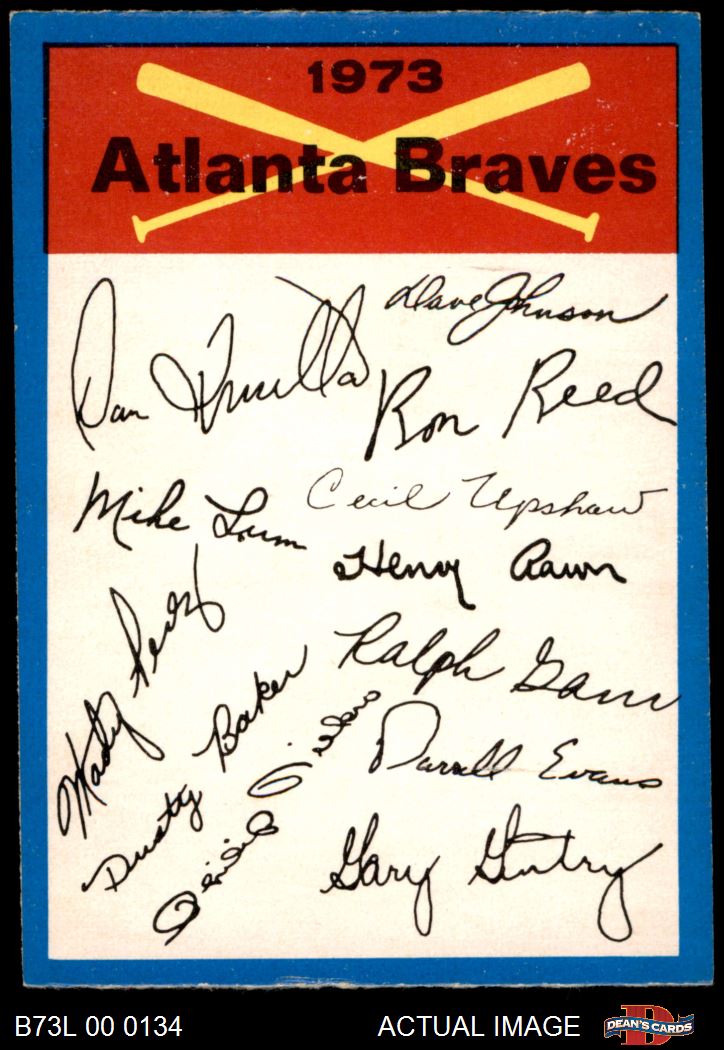 1973
Atlanta Braves
Dave Johnson
Dan Frisella
Ron Reed
Mike Lum
Cecil Upshaw
Henry Aaron
Marty Perez
Ralph Garr
Dusty Baker
Darrell Evans
Gary Gentry
B73L 00 0134
ACTUAL IMAGE
D
DEAN'S CARDS